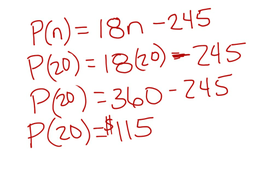 P(n) = 18n - 245
P(20) = 18(20) - 245
P(20) = 360 - 245
P(20) = $115